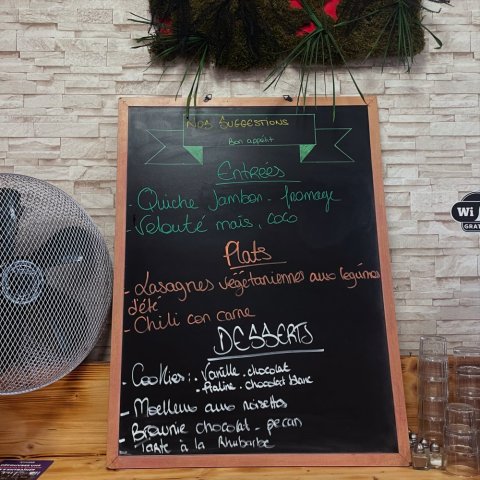 Nos Suggestions
Bon appétit
Entrées
- Quiche Jambon - fromage
- Velouté maïs, coco
Plats
- Lasagnes végétariennes aux légumes
d'été
- Chili con carne
DESSERTS
- Cookies : - Vanille - chocolat
- Praline - chocolat blanc
- Moelleux aux noisettes
- Brownie chocolat - pecan
- Tarte à la Rhubarbe
Wi
GRAT